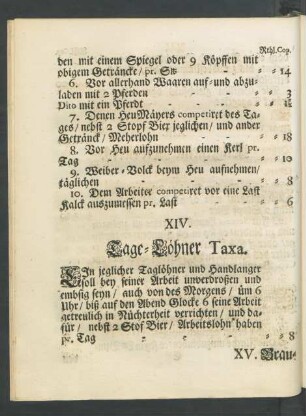 Rthl. Cop.
den mit einem Spiegel oder 9 Köpffen mit
obigem Getråncke / pr. - - - 14
6. Vor allerhand Waaren auf- und abzu-
laden mit 2 Pferden - - - 3
Dito mit ein Pferdt - - -
7. Denen Heu Mäyers competiret des Ta-
ges / nebst 2 Stopf Bier jeglichen / und ander
Getränck / Meherlohn - - - 18
8. Vor Heu aufzunehmen einen Kerl pr.
Tag - - - 10
9. Weiber-Volck beym Heu aufnehmen /
täglichen - - - 8
10. Dem Arbeiter competiret vor eine Last
Kalck auszumessen pr. Last - - 6
XIV.
Tage-Löhner Taxa.
EIn jeglicher Taglöhner und Handlanger
soll bey seiner Arbeit unverdroßen und
embsig seyn / auch von des Morgens / üm 6
Uhr / biß auf den Abend Glocke 6 seine Arbeit
getreulich in Nüchterheit verrichten / und da-
für / nebst 2 Stof Bier / Arbeitslohn haben
pr. Tag - - - 8
XV. Brau-